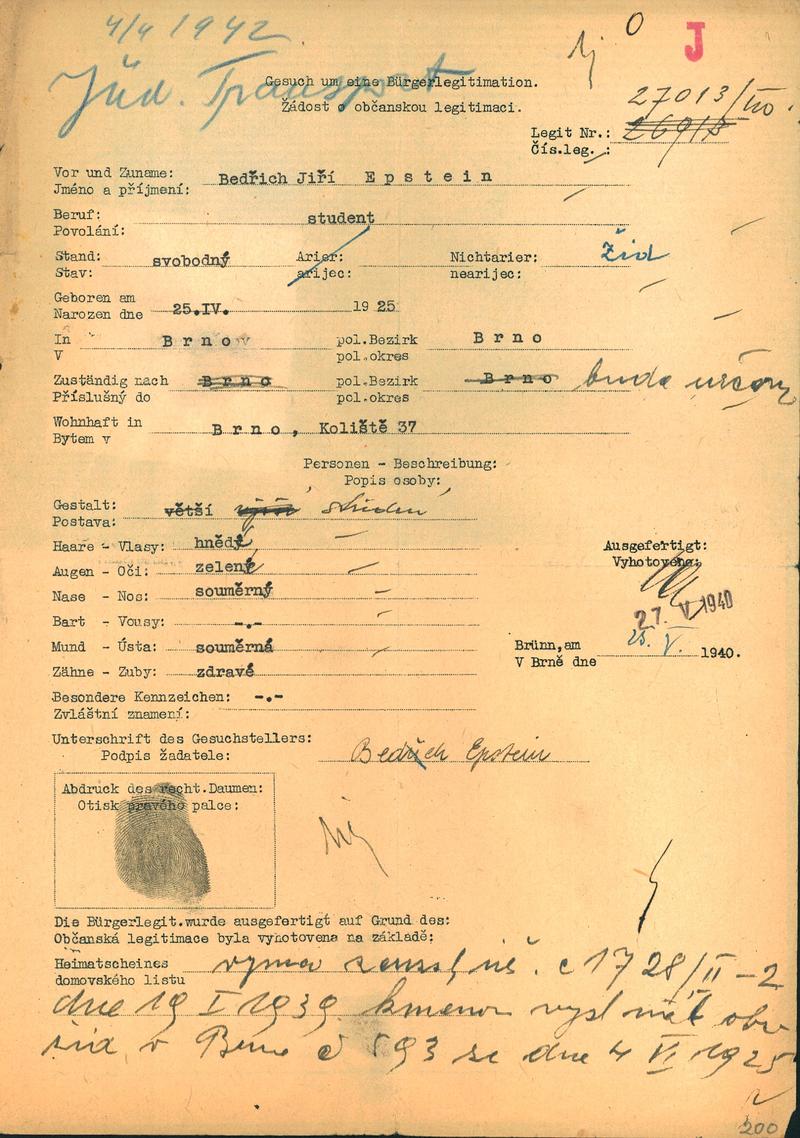 4/4 1942
Jüd. Transport
O
J
Gesuch um eine Bürgerlegitimation.
Žádost o občanskou legitimaci.
27013/
Legit Nr.: 26918
Čís.leg.:
Vor und Zuname: Bedřich Jiří Epstein
Jméno a příjmení:
Beruf: student
Povolání:
Stand: svobodný Arier: Nichtarier: Žid
Stav: arijec: nearijec:
Geboren am 25.IV. 1925
Narozen dne
In Brno pol.Bezirk Brno
V pol.okres
Zuständig nach Brno pol.Bezirk Brno bude určeno
Příslušný do pol.okres
Wohnhaft in Brno, Koliště 37
Bytem v
Personen - Beschreibung:
Popis osoby:
Gestalt: větší
Postava:
Haare - Vlasy: hnědý
Augen - Oči: zelené
Nase - Nos: souměrný
Bart - Vousy: -.-
Mund - Ústa: souměrná
Zähne - Zuby: zdravé
Besondere Kennzeichen: -.-
Zvláštní znamení:
Ausgefertigt:
Vyhotoveno:
27. V. 1940
Brünn,am 25. V. 1940.
V Brně dne
Unterschrift des Gesuchstellers: Bedřich Epstein
Podpis žadatele:
Abdruck des recht.Daumen:
Otisk pravého palce:
Die Bürgerlegit.wurde ausgefertigt auf Grund des:
Občanská legitimace byla vyhotovena na základě:
Heimatscheines č 1728/II-2
domovského listu
dne 19 I 1939
v Brně č 593 ze dne 4 VI 1925
200